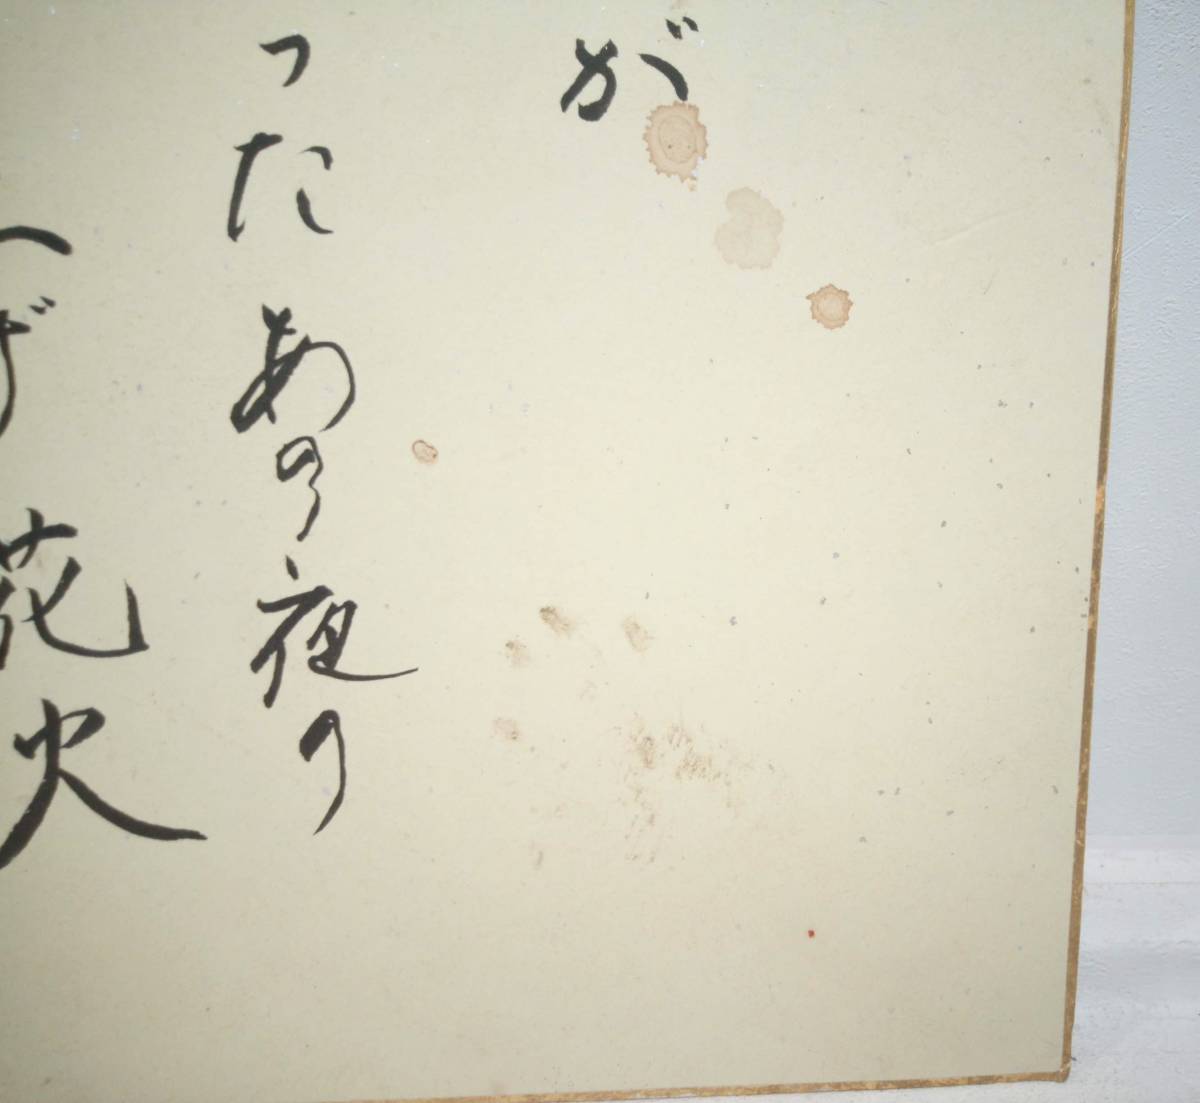 が
ったあの夜の
花火